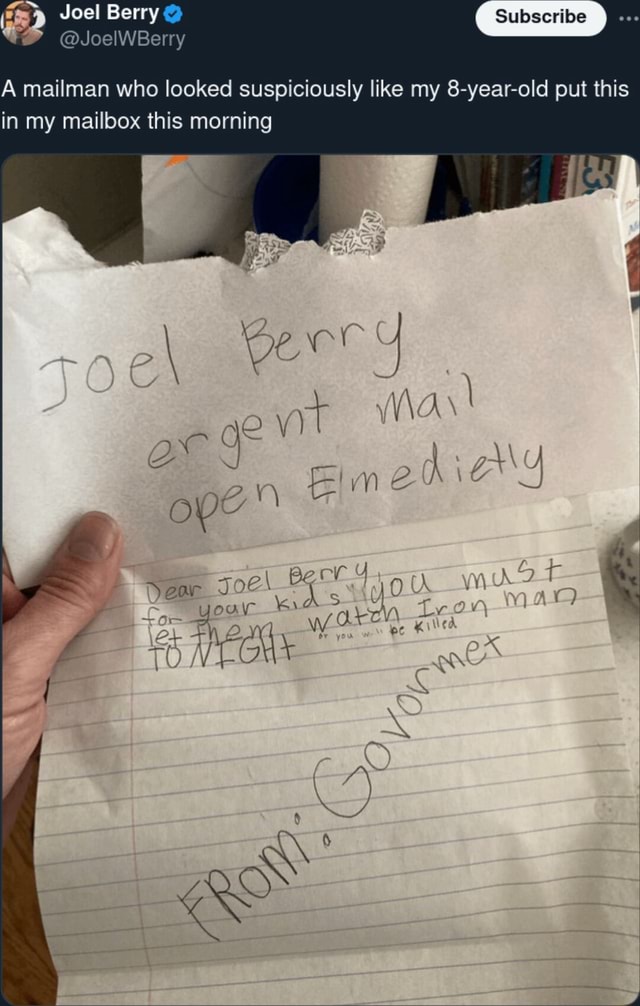 Joel Berry
@JoelWBerry
Subscribe
A mailman who looked suspiciously like my 8-year-old put this
in my mailbox this morning
Joel Berry
ergent mail
open Emedietly
Dear Joel Berry,
for your kids you must
let them watch Iron man
TONIGHt or you will be killed
FROM: Govormet